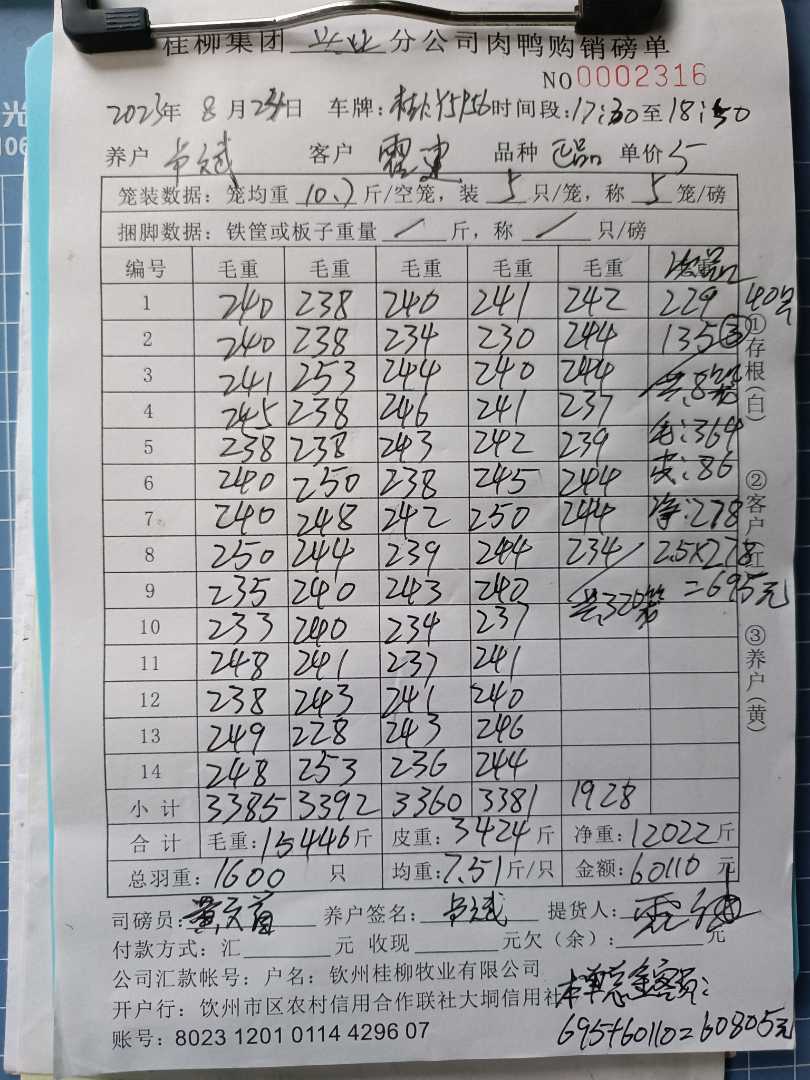 桂柳集团 兴业 分公司肉鸭购销磅单
NO 0002316
2023年 8月24日 车牌:桂KY5956 时间段:17:30至18:50
养户 卢斌 客户 霍建 品种 正品 单价 5
笼装数据:笼均重 10.7 斤/空笼,装 5 只/笼,称 5 笼/磅
捆脚数据:铁筐或板子重量 / 斤,称 / 只/磅
编号 毛重 毛重 毛重 毛重 毛重
1 240 238 240 241 242 229 40只
2 240 238 234 230 244 135 ③
3 241 253 244 240 244 共8笼
4 245 238 246 241 237 毛:364
5 238 238 243 242 239 皮:86
6 240 250 238 245 244 净:278
7 240 248 242 250 244 2.5×278
8 250 244 239 244 234 =695元
9 235 240 243 240 共320笼
10 233 240 234 237
11 248 241 237 241
12 238 243 241 240
13 249 228 243 246
14 248 253 236 244
小计 3385 3392 3360 3381 1928
合计 毛重:15446斤 皮重:3424斤 净重:12022斤
总羽重:1600 只 均重:7.51斤/只 金额:60110 元
①存根(白) ②客户(红) ③养户(黄)
司磅员: 养户签名:卢斌 提货人:
付款方式:汇 元 收现 元欠(余): 元
公司汇款帐号:户名:钦州桂柳牧业有限公司
开户行:钦州市区农村信用合作联社大垌信用社
账号:8023 1201 0114 4296 07
本单总金额:
695+60110=60805元